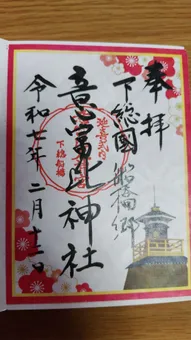 奉拝
下総國 船橋郷
意富比神社
令和七年二月十一日
延喜式内
下総船橋